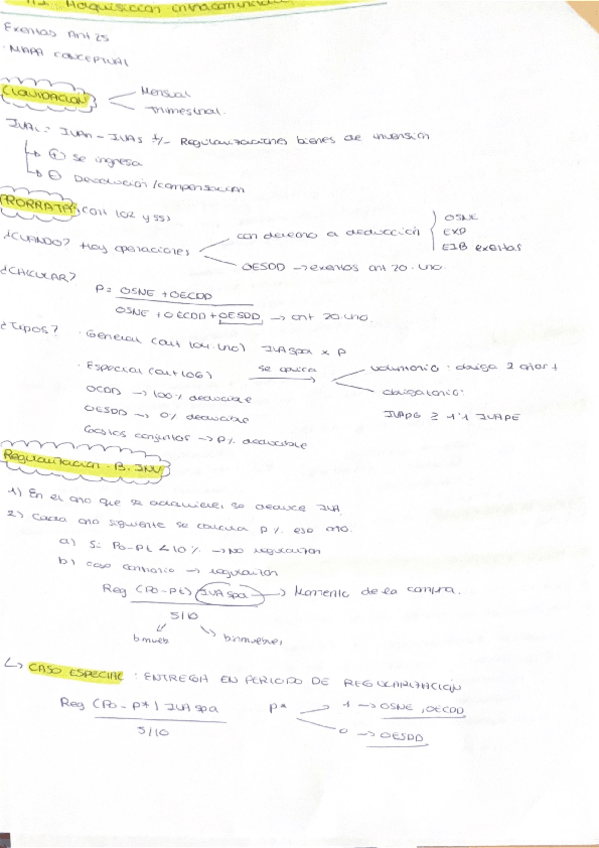 Adquisicion intracomunitaria
Exentas Art 25
· MAPA CONCEPTUAL
LIQUIDACION
Mensual
Trimestral.
IVAL = IVAR - IVAS +/- Regularizaciones bienes de inversión
⊕ se ingresa
⊖ Devolución / compensación
PRORRATA (art 102 y ss)
¿CUANDO? Hay operaciones
con derecho a deducción
OSNE
EXP
EIB exentas
OESDD → exentos art 20.uno.
¿CALCULAR?
P = OSNE + OECDD
OSNE + OECDD + OESDD → art 20.uno.
¿Tipos?
· General (art 104.uno) IVA spa x P
· Especial (art 106)
se aplica
voluntario: obliga 2 años +
obligatorio:
IVAPG ≥ 1'1 IVAPE
OCDD → 100% deducible
OESDD → 0% deducible
Gastos conjuntos → P% deducible
Regularización - B. INV
1) En el año que se adquieren se deduce IVA
2) Cada año siguiente se calcula P% ese año.
a) Si Po-Pt < 10% → NO regularizan
b) caso contrario → regularizan
Reg (Po - Pt) IVA spa → Momento de la compra.
5/10
b mueb
b inmuebles
↳ CASO ESPECIAL: ENTREGA EN PERIODO DE REGULARIZACIÓN
Reg (Po - P*) IVA spa
5/10
P*
1 → OSNE, OECDD
0 → OESDD